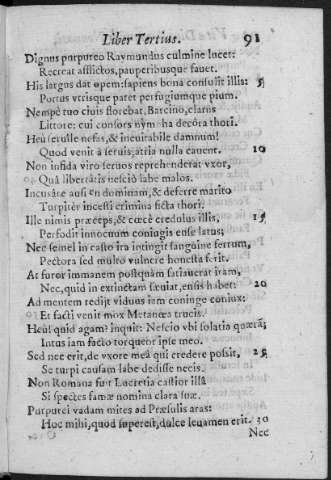 Liber Tertius. 91
Dignus purpureo Raymundus culmine lucet:
Recreat afflictos, pauperibusque favet.
His largus dat opem: sapiens bona consulit illis: 5
Portus utrisque patet perfugiumque pium.
Nempè tuo civis florebat, Barcino, clarus
Littore: cui consors nymphа decóra thori.
Heu servile nefas, & inevitabile damnum!
Quod venit à servis, atria nulla cavent. 10
Non infida viro servos reprehenderat uxor,
Quâ libertatis nescio labe malos.
Incusare ausi en dominam, & deferre marito
Turpitèr incesti crimina ficta thori.
Ille nimis præceps, & cœcè credulus illis, 15
Perfodit innocuum coniugis ense latus;
Nec semel in casto ira intingit sanguine ferrum,
Pectora sed multo vulnere honesta ferit.
At furor immanem postquàm satiaverat iram,
Nec, quid in extinctam sæviat, ensis habet: 20
Ad mentem redijt viduus iam coniuge coniux:
Et facti venit mox Metanœa trucis.
Heu! quid agam? inquit: Nescio ubi solatia quæră;
Intus iam facto torquent ipse meo.
Sed nec erit, de uxore meâ qui credere possit, 25
Se turpi causam labe dedisse necis.
Non Romana fuit Lucretia castior illâ
Si spectes famæ nomina clara suæ.
Purpurei vadam mites ad Præsulis aras:
Hoc mihi, quod superest, dulce levamen erit. 30
Nec